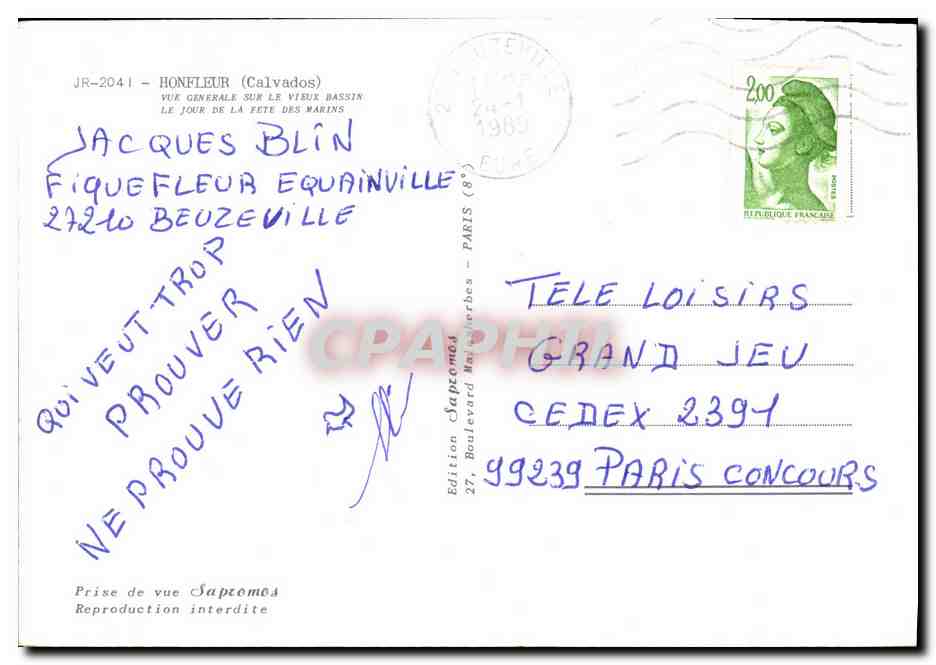 JR-2041 - HONFLEUR (Calvados)
VUE GENERALE SUR LE VIEUX BASSIN
LE JOUR DE LA FETE DES MARINS
JACQUES BLIN
FIQUEFLEUR EQUAINVILLE
27210 BEUZEVILLE
QUI VEUT-TROP
PROUVER
NE PROUVE RIEN
Prise de vue Sapromos
Reproduction interdite
Edition Sapromos
27, Boulevard Malesherbes - PARIS (8°)
24-1
1989
EURE
2,00
POSTES
REPUBLIQUE FRANÇAISE
TELE LOISIRS
GRAND JEU
CEDEX 2391
99239 PARIS CONCOURS
CPAPHIL